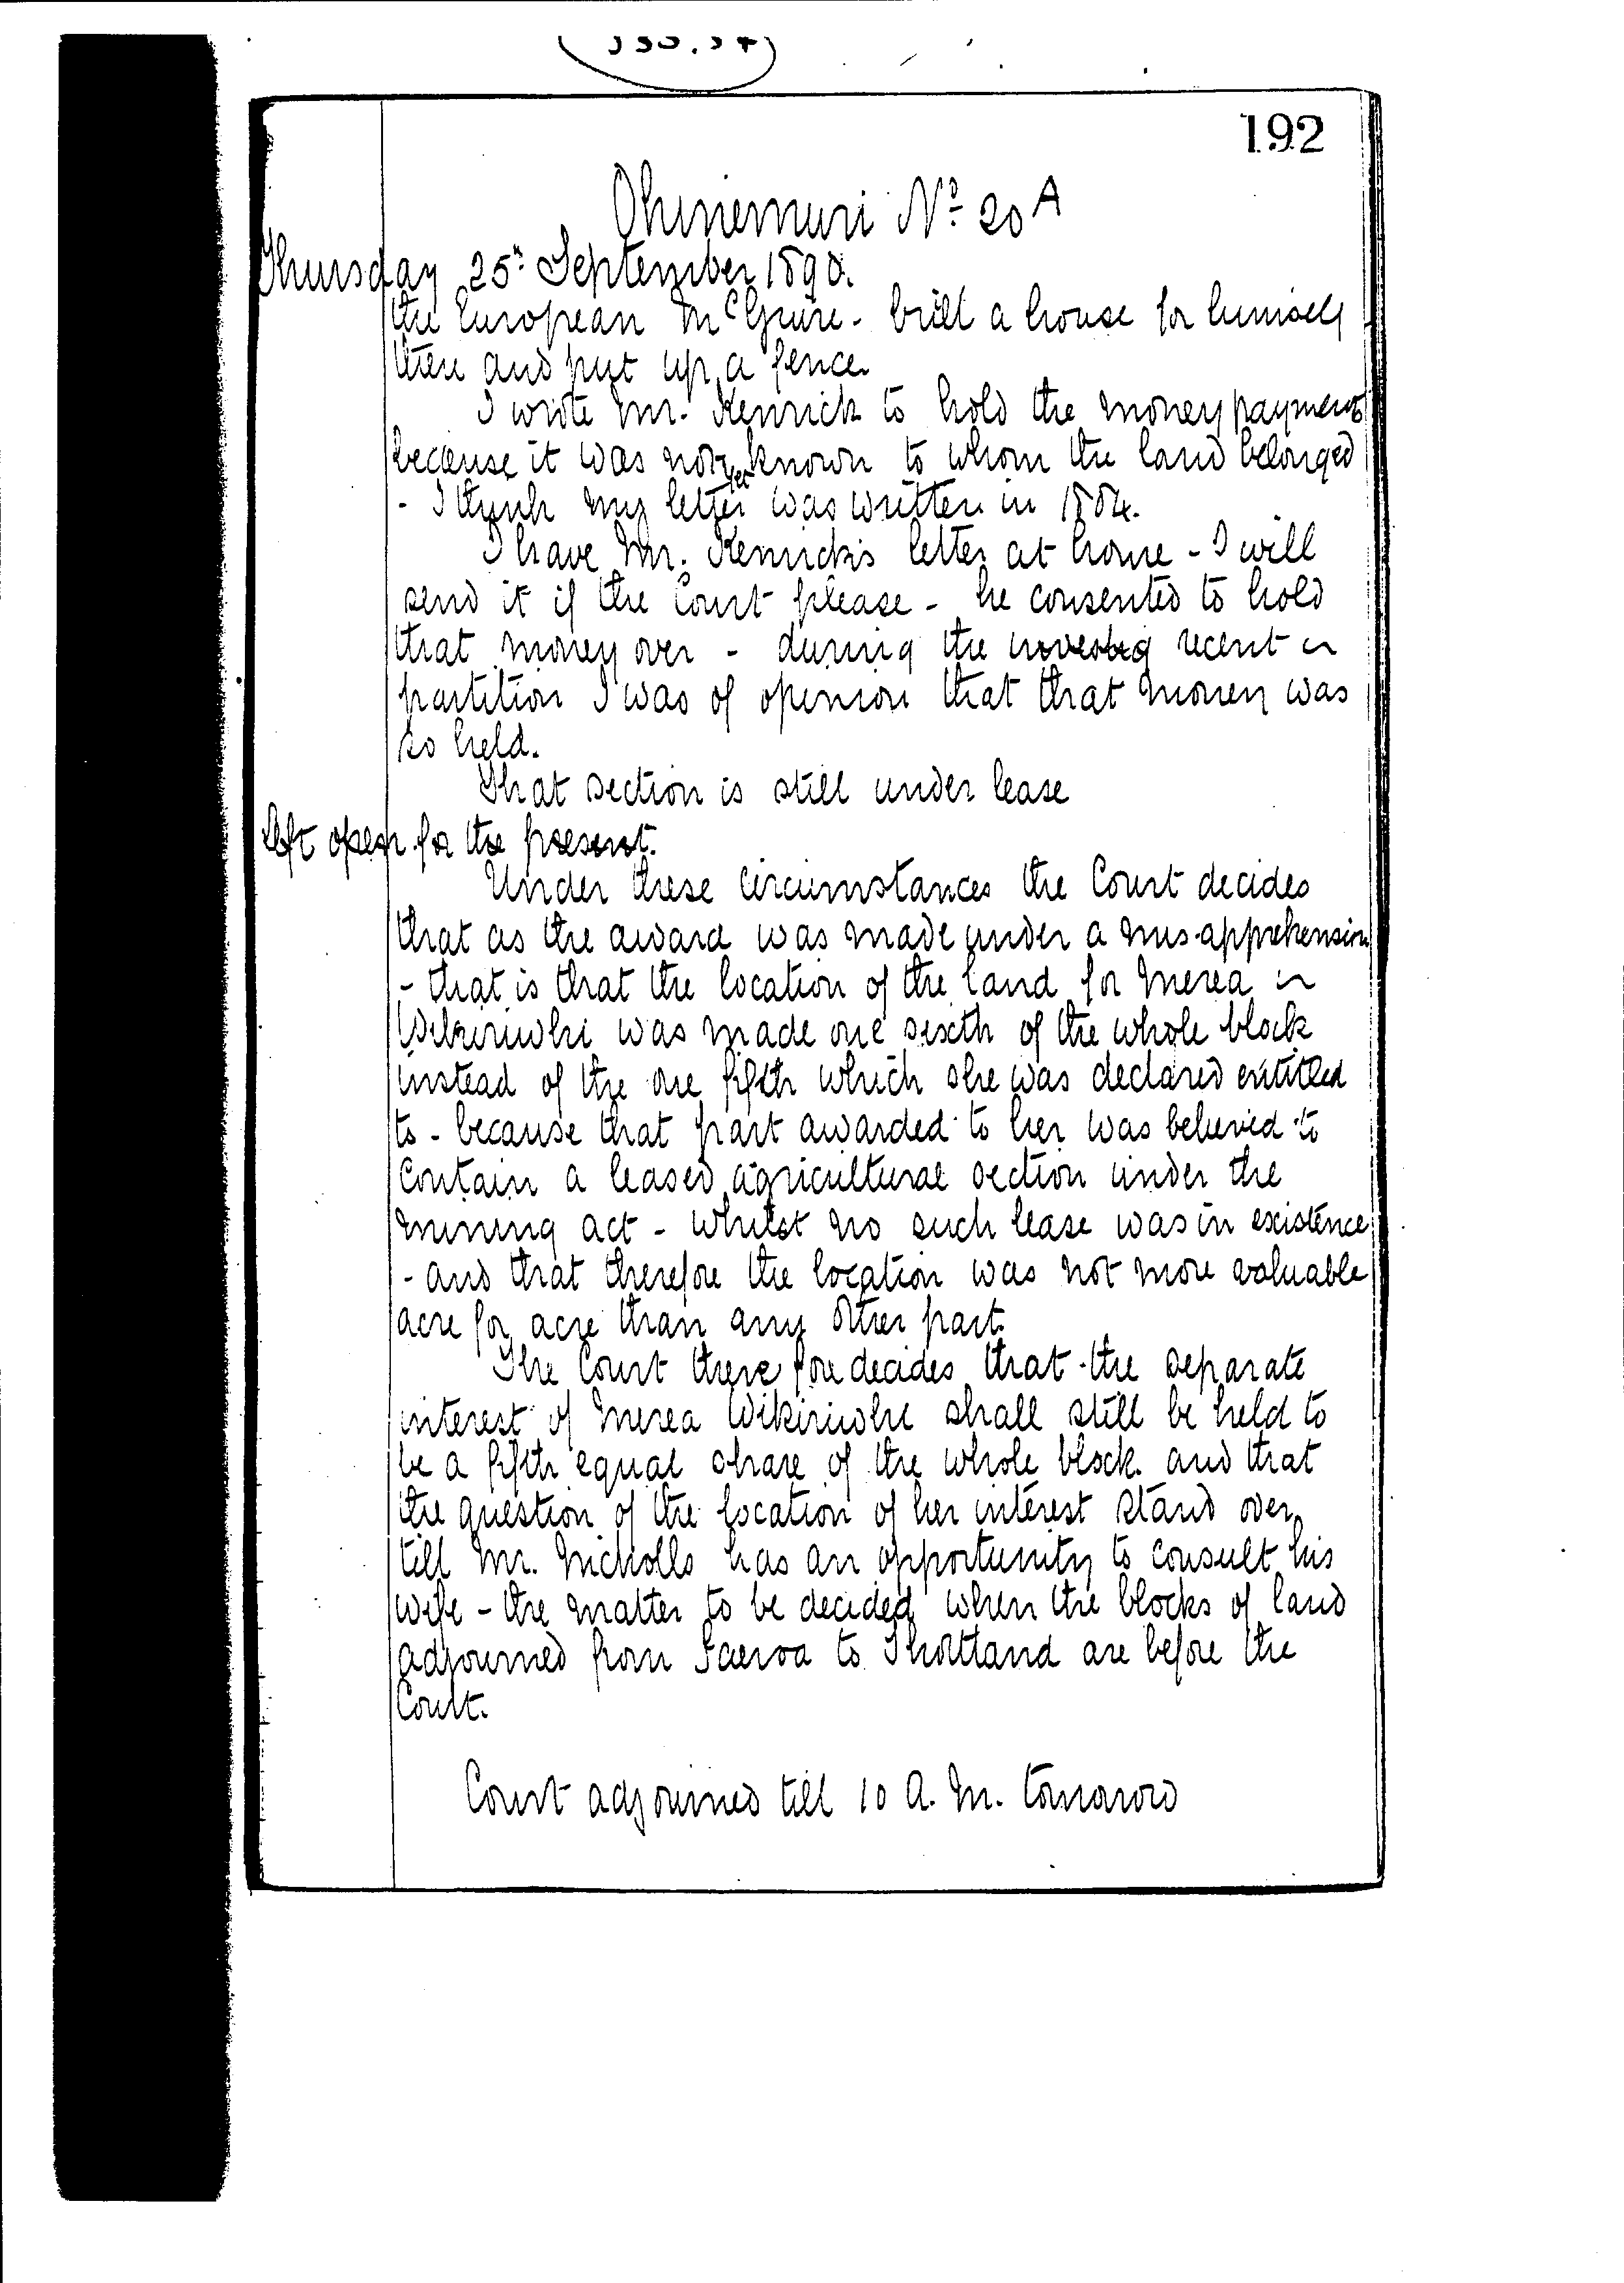 192
Ohinemuri No. 20A
Thursday 25th September 1890.
the European McGuire - built a house for himself
there and put up a fence.
I wrote Mr. Kenrick to hold the money payments
because it was not yet known to whom the land belonged
- I think my letter was written in 1884.
I have Mr. Kenrick's letter at home - I will
send it if the Court please - he consented to hold
that money over - during the investig recent
partition I was of opinion that that money was
so held.
That section is still under lease
left open for the present.
Under these circumstances the Court decides
that as the award was made under a mis-apprehension
- that is that the location of the land for Merea
Wikiriwhi was made one sixth of the whole block
instead of the one fifth which she was declared entitled
to - because that part awarded to her was believed to
contain a leased agricultural section under the
mining act - whilst no such lease was in existence
- and that therefore the location was not more valuable
acre for acre than any other part.
The Court therefore decides that the separate
interest of Merea Wikiriwhi shall still be held to
be a fifth equal share of the whole block and that
the question of the location of her interest stand over
till Mr. Nicholls has an opportunity to consult his
wife - the matter to be decided when the blocks of land
adjourned from Paeroa to Shortland are before the
Court.
Court adjourned till 10 A.M. tomorow